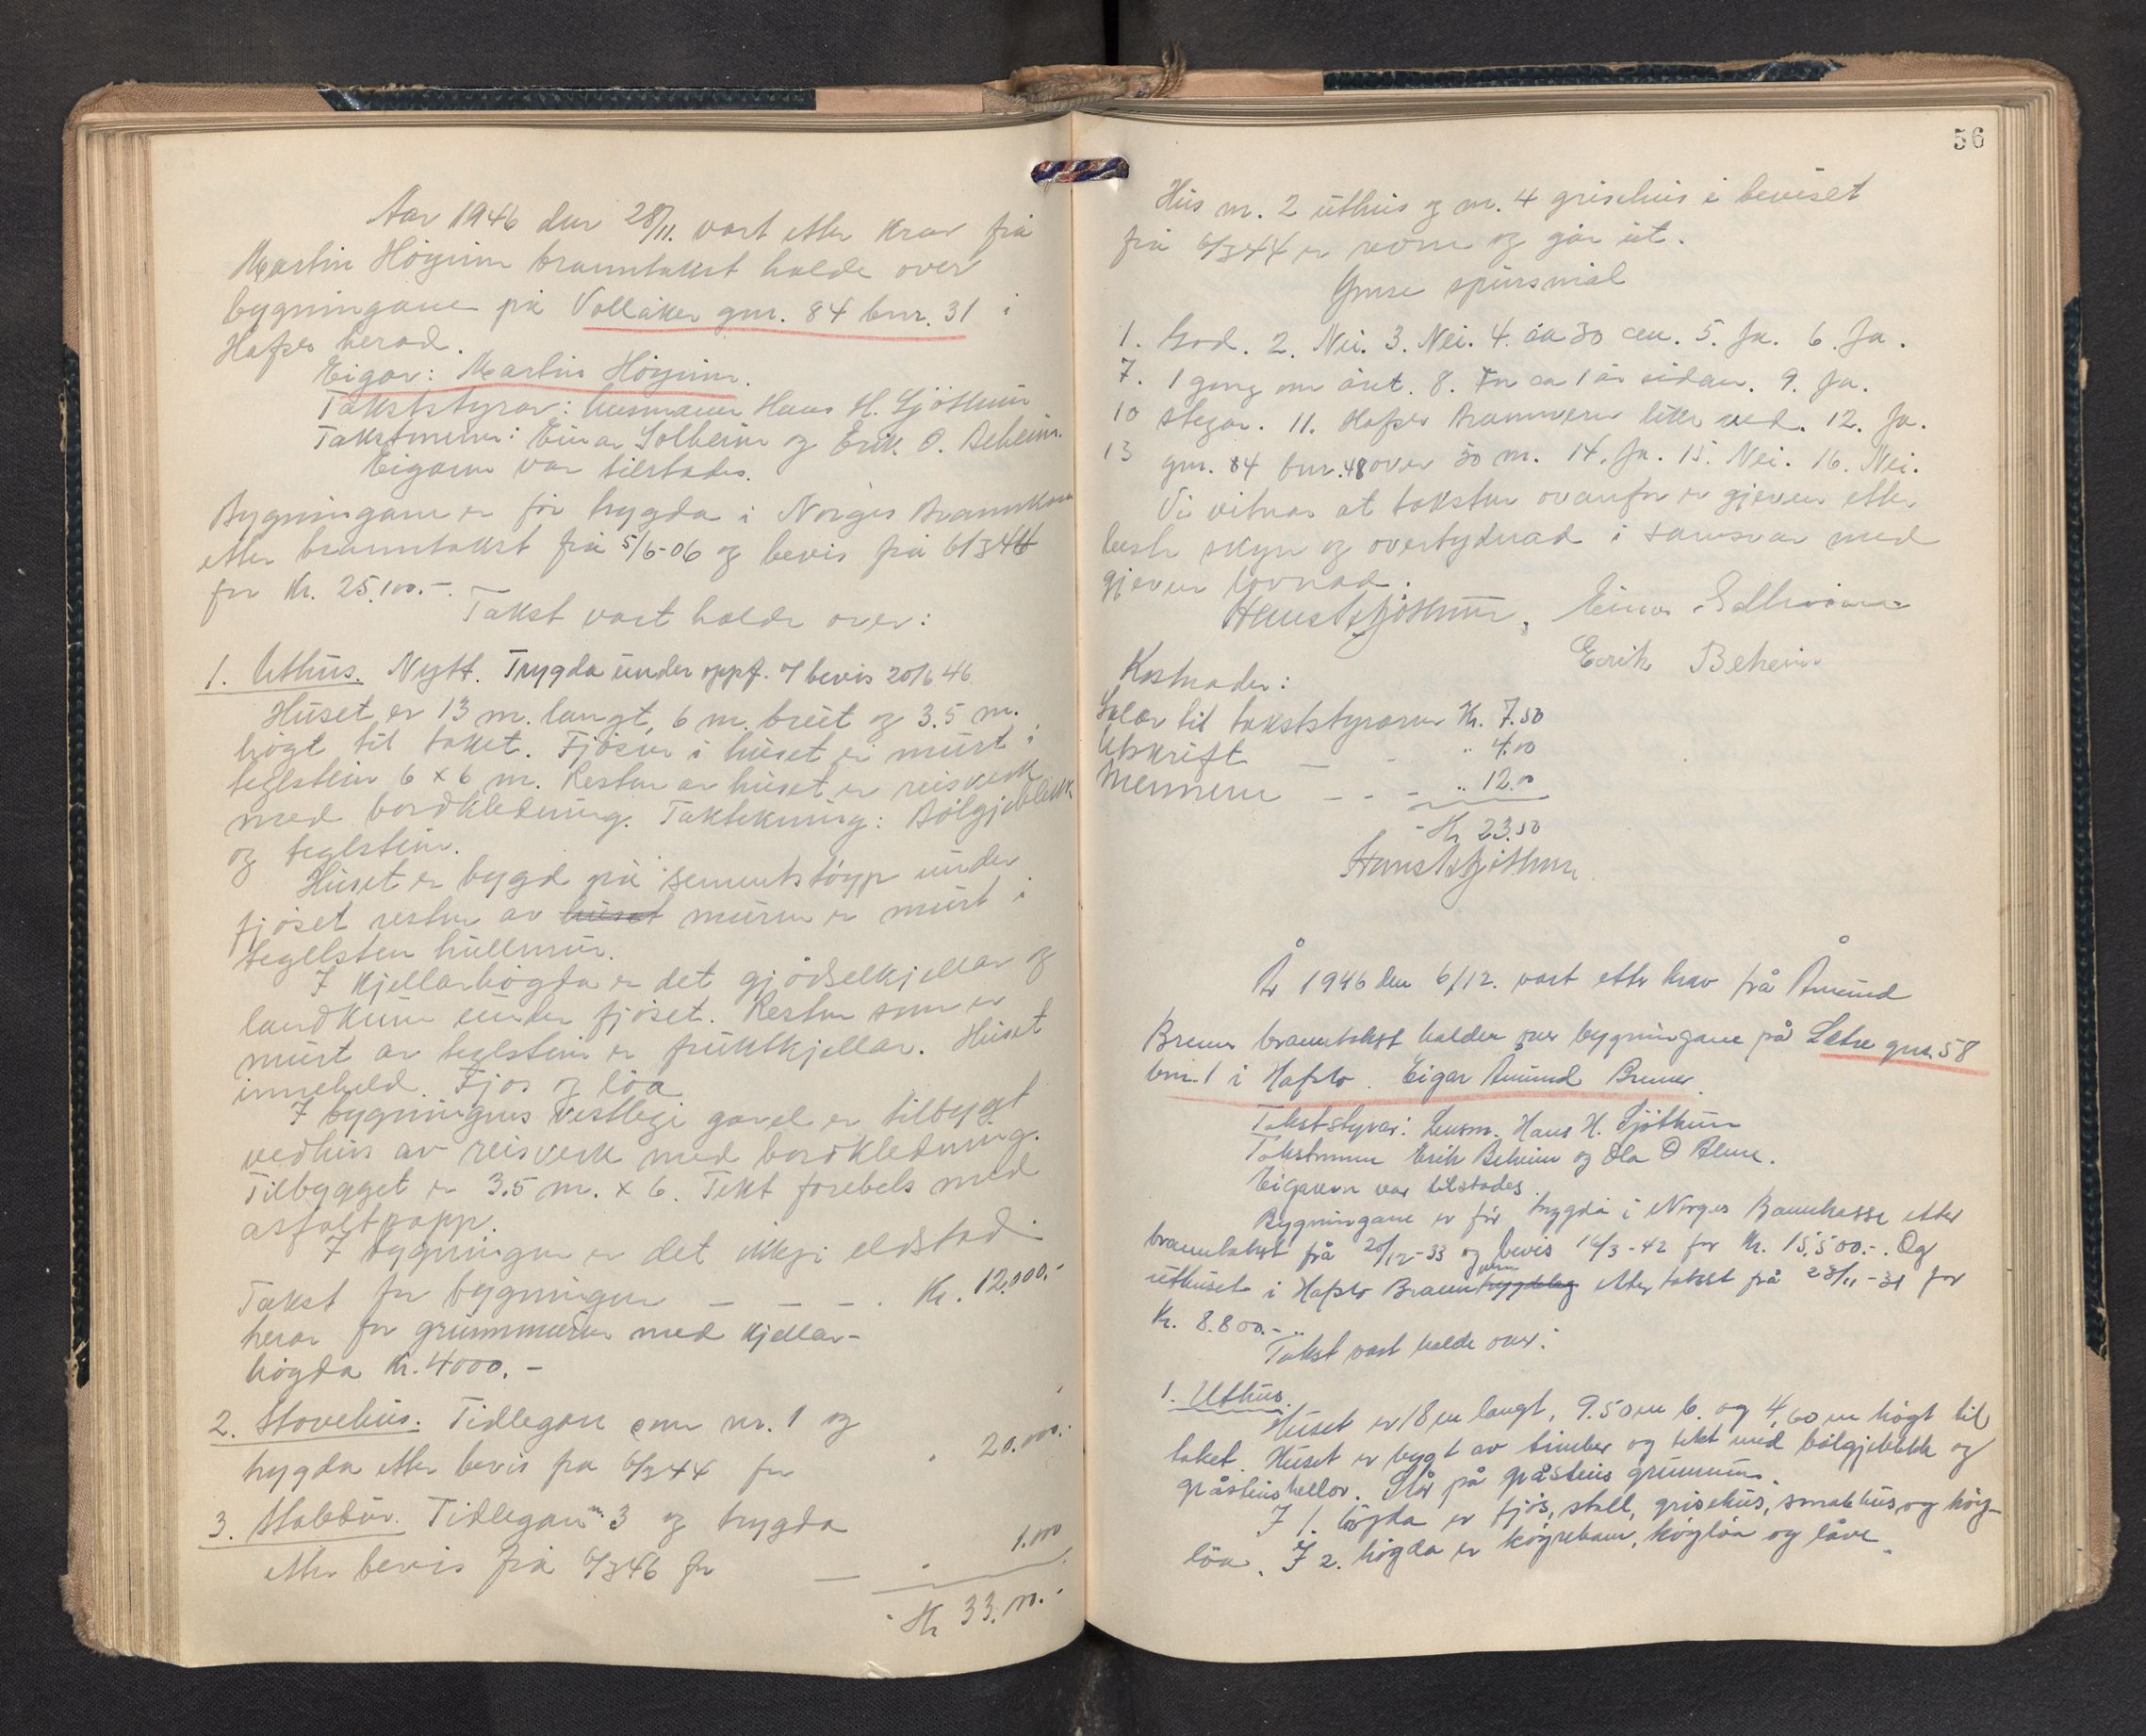 Aar 1946 den 28/11. vart etter krav frå
Martin Høyum branntakst halde over
bygningane på Vollåker gnr. 84 bnr. 31 i
Hafslo herad.
Eigar: Martin Høyum.
Takststyrar: lensmann Hans H. Sjøthun
Takstmenn: Einar Solheim og Erik O. Beheim.
Eigaren var tilstades.
Bygningane er før trygda i Norges Brannkasse
etter branntakst frå 5/6-06 og bevis frå 6/3 44
for Kr. 25.100.-.
Takst vart halde over:
1. Uthus. Nytt. Trygda under oppf. bevis 20/6 46
Huset er 13 m. langt, 6 m. breit og 3.5 m.
høgt til taket. Fjøset i huset er murt i
teglstein 6 x 6 m. Resten av huset er reisverk
med bordkledning. Taktekning: Bølgjeblekk
og teglstein.
Huset er bygd på sementstøyp under
fjøset resten av huset muren er murt i
teglsten hullmur.
I kjellarhøgda er det gjødselkjellar og
landkum under fjøset. Resten som er
murt av teglstein er fruktkjellar. Huset
inneheld. Fjøs og løa
I bygningens vestlege gavel er tilbygt
vedhus av reisverk med bordkledning.
Tilbygget er 3.5 m. x 6. Tekt førebels med
asfaltpapp.
I bygningen er det ikkje eldstad.
Takst for bygningen — — — . Kr. 12.000.-
herav for grunnmuren med kjellar-
høgda Kr. 4000.-
2. Stovehus. Tidlegare som nr. 1 og
trygda etter bevis fra 6/3 44 for " 20.000.-
3. Stabbur. Tidlegare nr. 3 og trygda
etter bevis frå 6/3 46 for — " 1.100
Kr 33.100.-
56
Hus nr. 2 uthus og nr. 4 grisehus i beviset
frå 6/3 44 er og går ut.
Ymse spursmål
1. God. 2. Nei. 3. Nei. 4. ca 30 cm. 5. Ja. 6. Ja.
7. 1 gong om året. 8. For ca 1 år sidan. 9. Ja.
10 stegar. 11. Hafslo Brannvern like ved. 12. Ja.
13 gnr. 84 bnr. 48 over 30 m. 14. Ja. 15. Nei. 16. Nei.
Vi vitnar at taksten ovanfor er gjeven etter
beste skyn og overtydnad i samsvar med
gjeven lovnad.
Hans H Sjøthun, Einar Solheim
Erik Beheim
Kostnader:
Salær til takststyraren Kr. 7.50
Utskrift — - " 4.00
Mennene — - - " 12.00
Kr 23.50
Hans H Sjøthun
År 1946 den 6/12. vart etter krav frå Åmund
Bremer branntakst halden over bygningane på Lætre gnr. 58
bnr. 1 i Hafslo. Eigar Åmund Bremer.
Takststyrar: Lensm. Hans H. Sjøthun
Takstmenn Erik Beheim og Ola O Alme.
Eigaren var tilstades.
Bygningane er før trygda i Norges Brannkasse etter
branntakst frå 20/12-33 og bevis 14/3-42 for Kr. 15,500.-. Og
uthuset i Hafslo Branntrygdelag etter takst frå 28/11-31 for
Kr. 8.800.-.
Takst vart halde over:
1. Uthus.
Huset er 18 m langt, 9.50 m b. og 4,60 m høgt til
taket. Huset er bygt av timber og tekt med bølgjeblekk og
gråsteinshellor. Står på gråsteins grunnmur.
I 1. høgda er fjøs, stall, grisehus, smalehus, og høy-
løa. I 2. høgda er køyrebane, høyløa og låve.